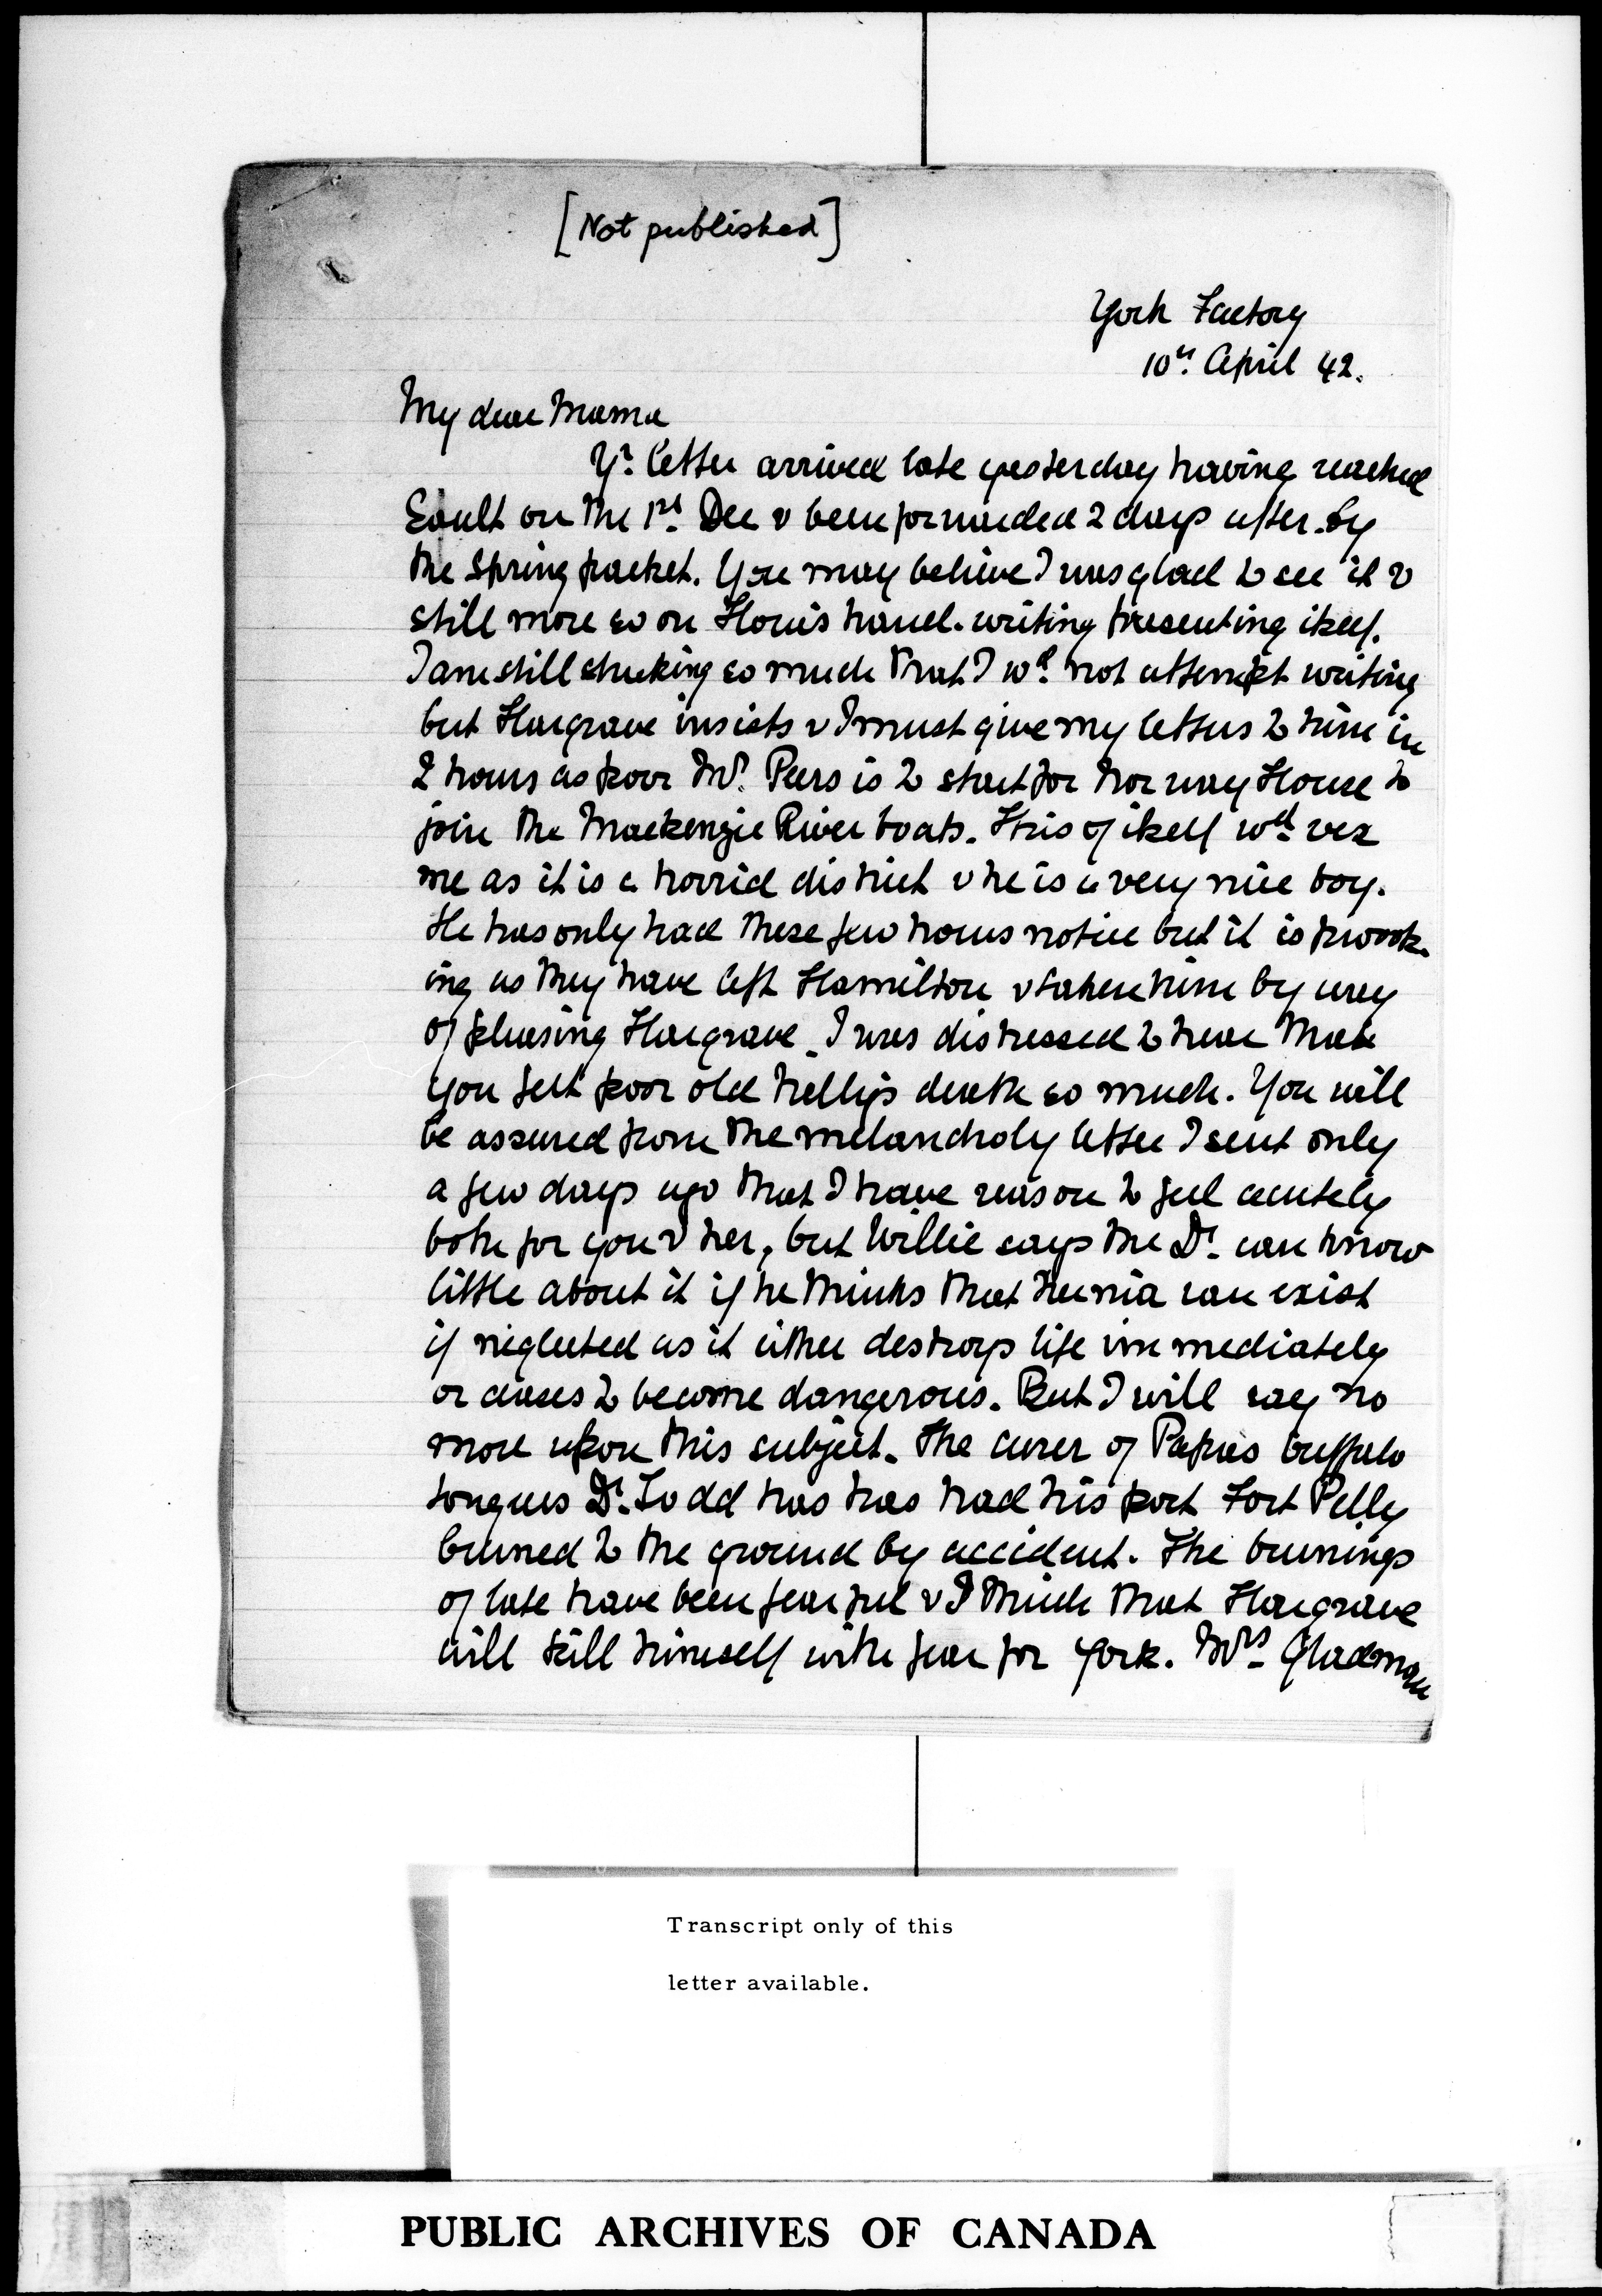 [Not published]
York Factory
10th. April 42.
My dear Mama
Yr. letter arrived late yesterday having reached
Sault on the 1st. Dec & been forwarded 2 days after by
the Spring packet. You may believe I was glad to see it &
still more so on Flora's hand-writing presenting itself.
I am still shaking so much that I wd. not attempt writing
but Hargrave insists & I must give my letters to him in
2 hours as poor Mr. Peers is to start for Norway House to
join the Mackenzie River boats. This of itself wd. vex
me as it is a horrid district & he is a very nice boy.
He has only had these few hours notice but it is provok-
ing as they have left Hamilton & taken him by way
of pleasing Hargrave. I was distressed to hear that
you felt poor old Nelly's death so much. You will
be assured from the melancholy letter I sent only
a few days ago that I have reason to feel acutely
both for you & her, but Willie says the Dr. can know
little about it if he thinks that hernia can exist
if neglected as it either destroys life immediately
or ceases to become dangerous. But I will say no
more upon this subject. The curer of Papa's buffalo
tongues Dr. Todd has has had his post Fort Pelly
burned to the ground by accident. The burnings
of late have been fearful & I think that Hargrave
will kill himself with fear for York. Mrs. Gladman
Transcript only of this
letter available.
PUBLIC ARCHIVES OF CANADA